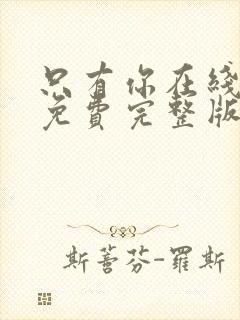 只有你在线
免费完整版
斯蒈芬-羅斯